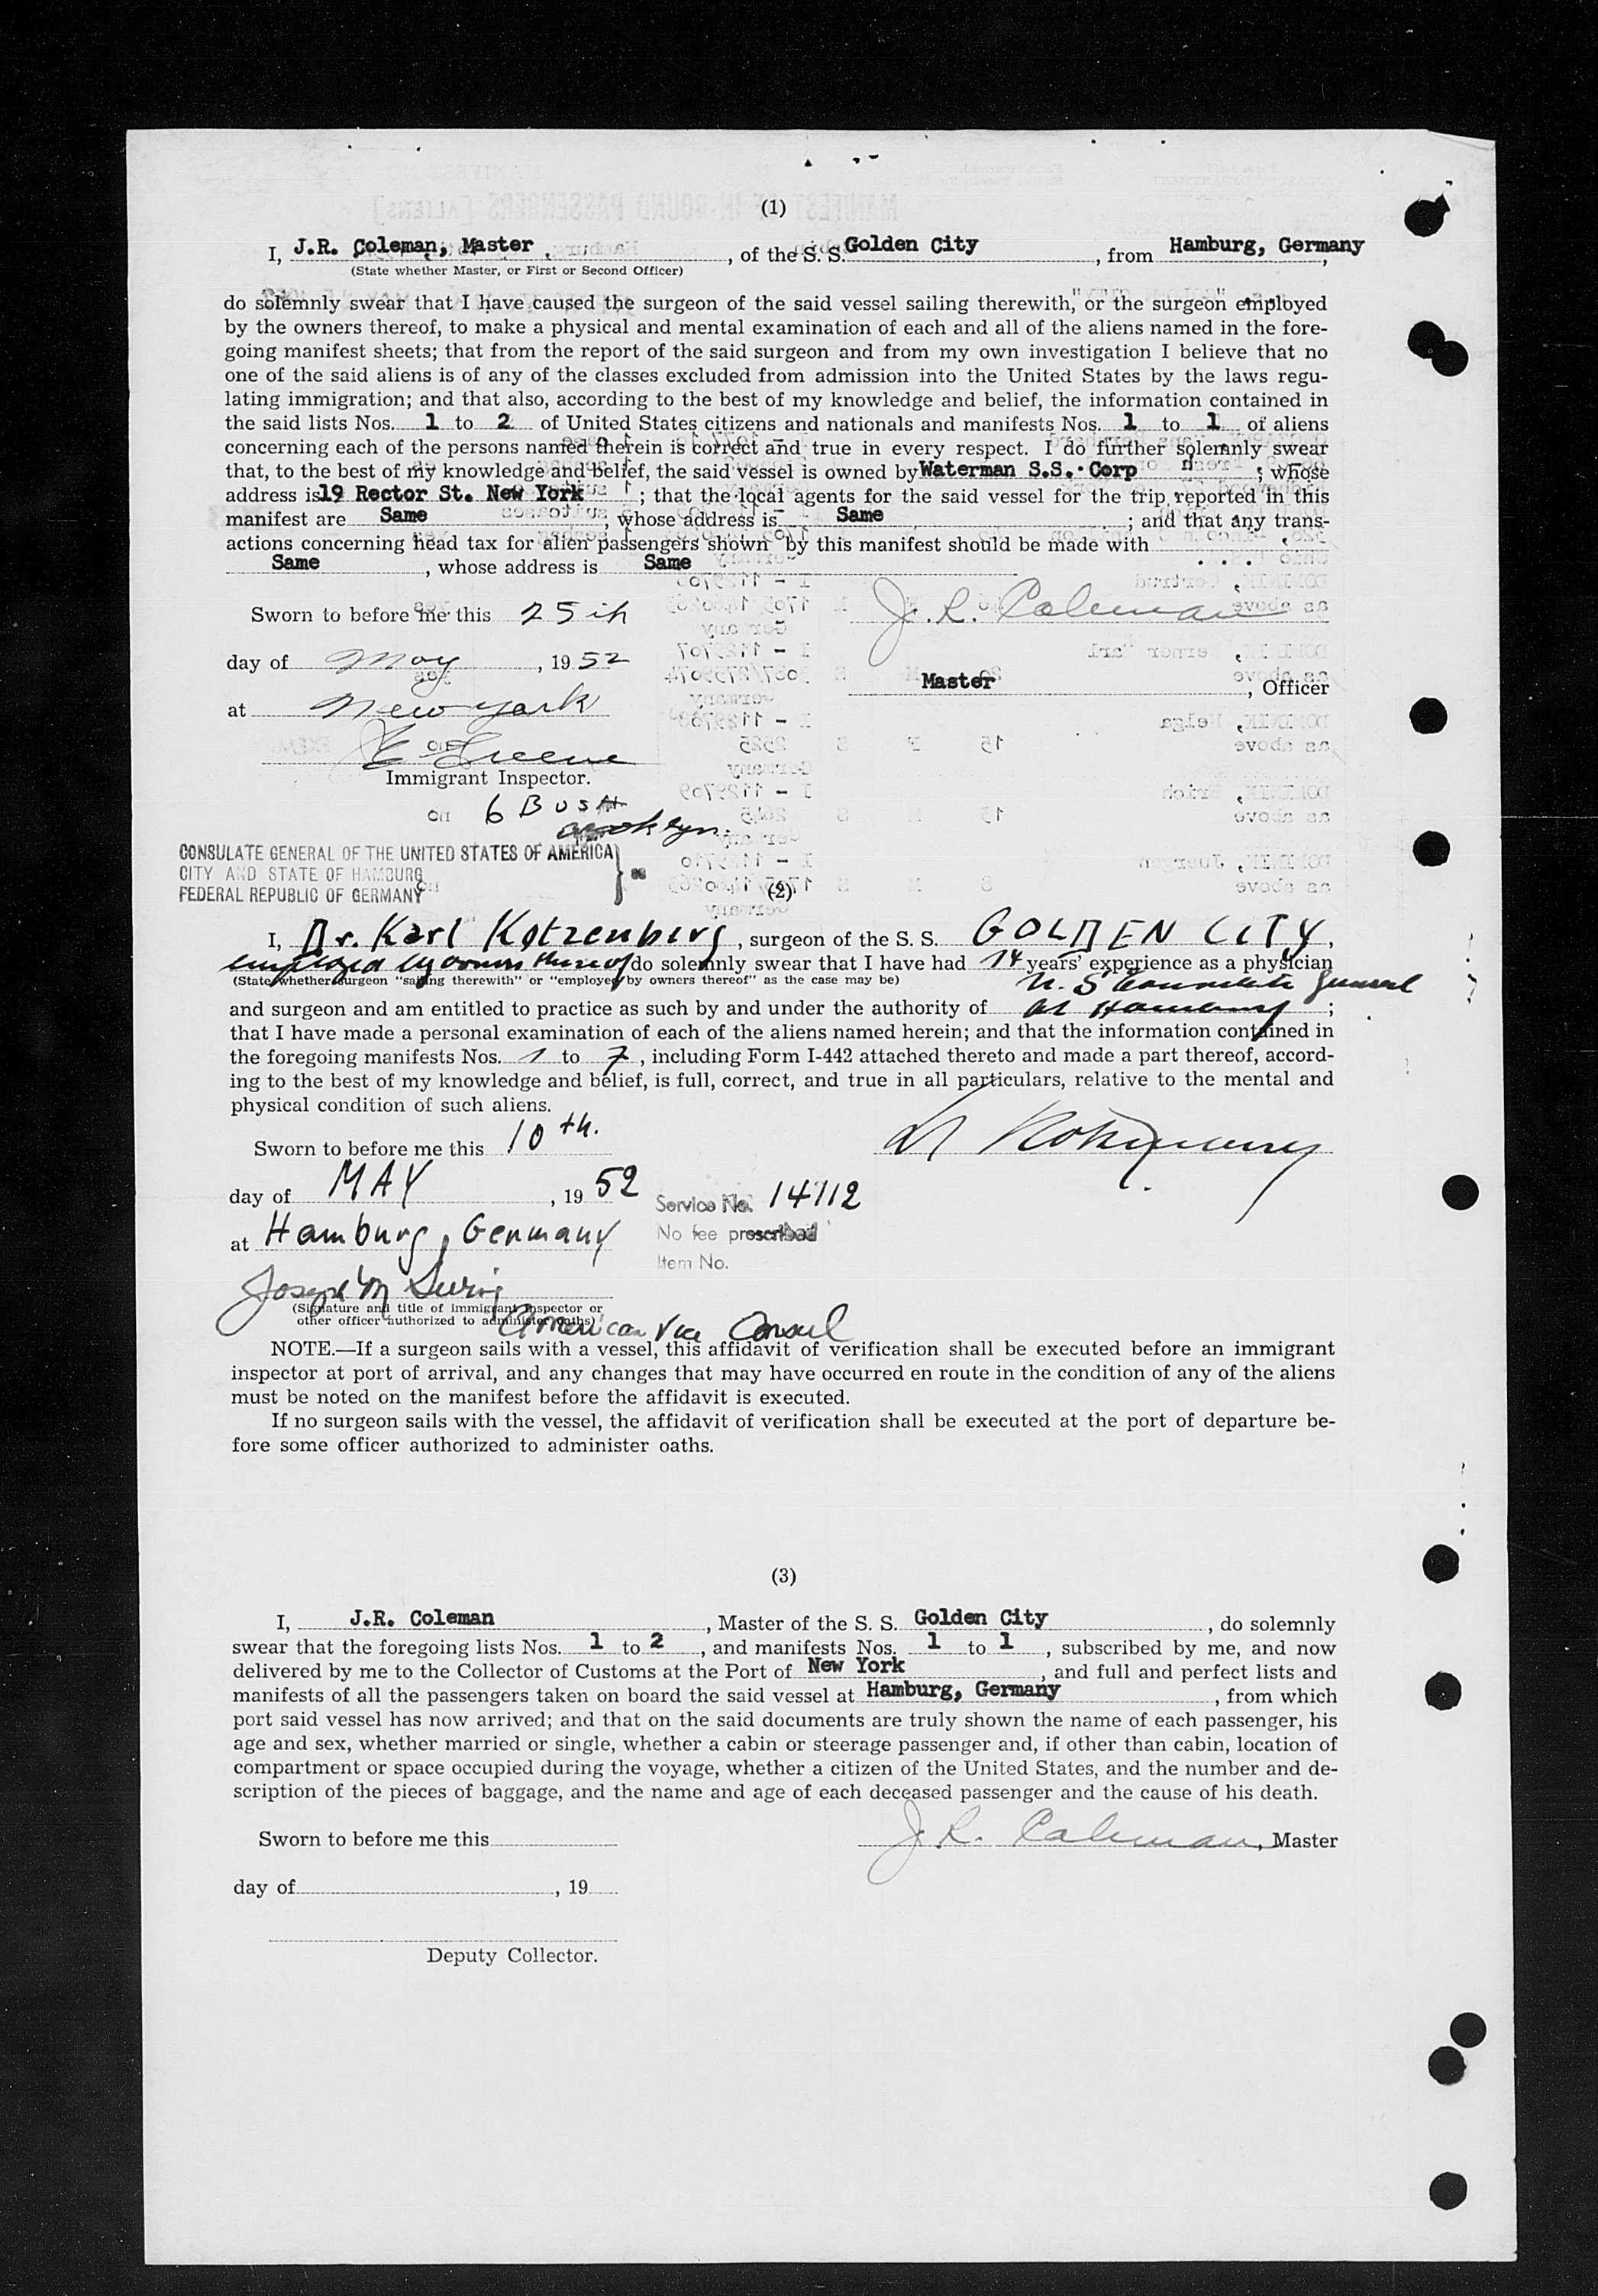 (1)
I, J.R. Coleman, Master, of the S. S. Golden City, from Hamburg, Germany,
(State whether Master, or First or Second Officer)
do solemnly swear that I have caused the surgeon of the said vessel sailing therewith, or the surgeon employed
by the owners thereof, to make a physical and mental examination of each and all of the aliens named in the fore-
going manifest sheets; that from the report of the said surgeon and from my own investigation I believe that no
one of the said aliens is of any of the classes excluded from admission into the United States by the laws regu-
lating immigration; and that also, according to the best of my knowledge and belief, the information contained in
the said lists Nos. 1 to 2 of United States citizens and nationals and manifests Nos. 1 to 1 of aliens
concerning each of the persons named therein is correct and true in every respect. I do further solemnly swear
that, to the best of my knowledge and belief, the said vessel is owned by Waterman S.S. Corp; whose
address is 19 Rector St. New York; that the local agents for the said vessel for the trip reported in this
manifest are Same, whose address is Same; and that any trans-
actions concerning head tax for alien passengers shown by this manifest should be made with
Same, whose address is Same
Sworn to before me this 25th J.R. Coleman
day of May, 1952
Master, Officer
at New York
E Greene
Immigrant Inspector.
6 Bush
Brooklyn.
CONSULATE GENERAL OF THE UNITED STATES OF AMERICA
CITY AND STATE OF HAMBURG } ss
FEDERAL REPUBLIC OF GERMANY
(2)
I, Dr. Karl Kotzenberg, surgeon of the S. S. GOLDEN CITY,
employed by owners thereof do solemnly swear that I have had 14 years' experience as a physician
(State whether surgeon "sailing therewith" or "employed by owners thereof" as the case may be)
U. S Consulate General
and surgeon and am entitled to practice as such by and under the authority of at Hamburg;
that I have made a personal examination of each of the aliens named herein; and that the information contained in
the foregoing manifests Nos. 1 to 7, including Form I-442 attached thereto and made a part thereof, accord-
ing to the best of my knowledge and belief, is full, correct, and true in all particulars, relative to the mental and
physical condition of such aliens.
Sworn to before me this 10th. Kotzenberg
day of MAY, 1952
Service No. 14112
at Hamburg, Germany
No fee prescribed
Item No.
Joseph M
(Signature and title of immigrant inspector or
other officer authorized to administer oaths)
American Vice Consul
NOTE.—If a surgeon sails with a vessel, this affidavit of verification shall be executed before an immigrant
inspector at port of arrival, and any changes that may have occurred en route in the condition of any of the aliens
must be noted on the manifest before the affidavit is executed.
If no surgeon sails with the vessel, the affidavit of verification shall be executed at the port of departure be-
fore some officer authorized to administer oaths.
(3)
I, J.R. Coleman, Master of the S. S. Golden City, do solemnly
swear that the foregoing lists Nos. 1 to 2, and manifests Nos. 1 to 1, subscribed by me, and now
delivered by me to the Collector of Customs at the Port of New York, and full and perfect lists and
manifests of all the passengers taken on board the said vessel at Hamburg, Germany, from which
port said vessel has now arrived; and that on the said documents are truly shown the name of each passenger, his
age and sex, whether married or single, whether a cabin or steerage passenger and, if other than cabin, location of
compartment or space occupied during the voyage, whether a citizen of the United States, and the number and de-
scription of the pieces of baggage, and the name and age of each deceased passenger and the cause of his death.
Sworn to before me this J.R. Coleman, Master
day of , 19
Deputy Collector.